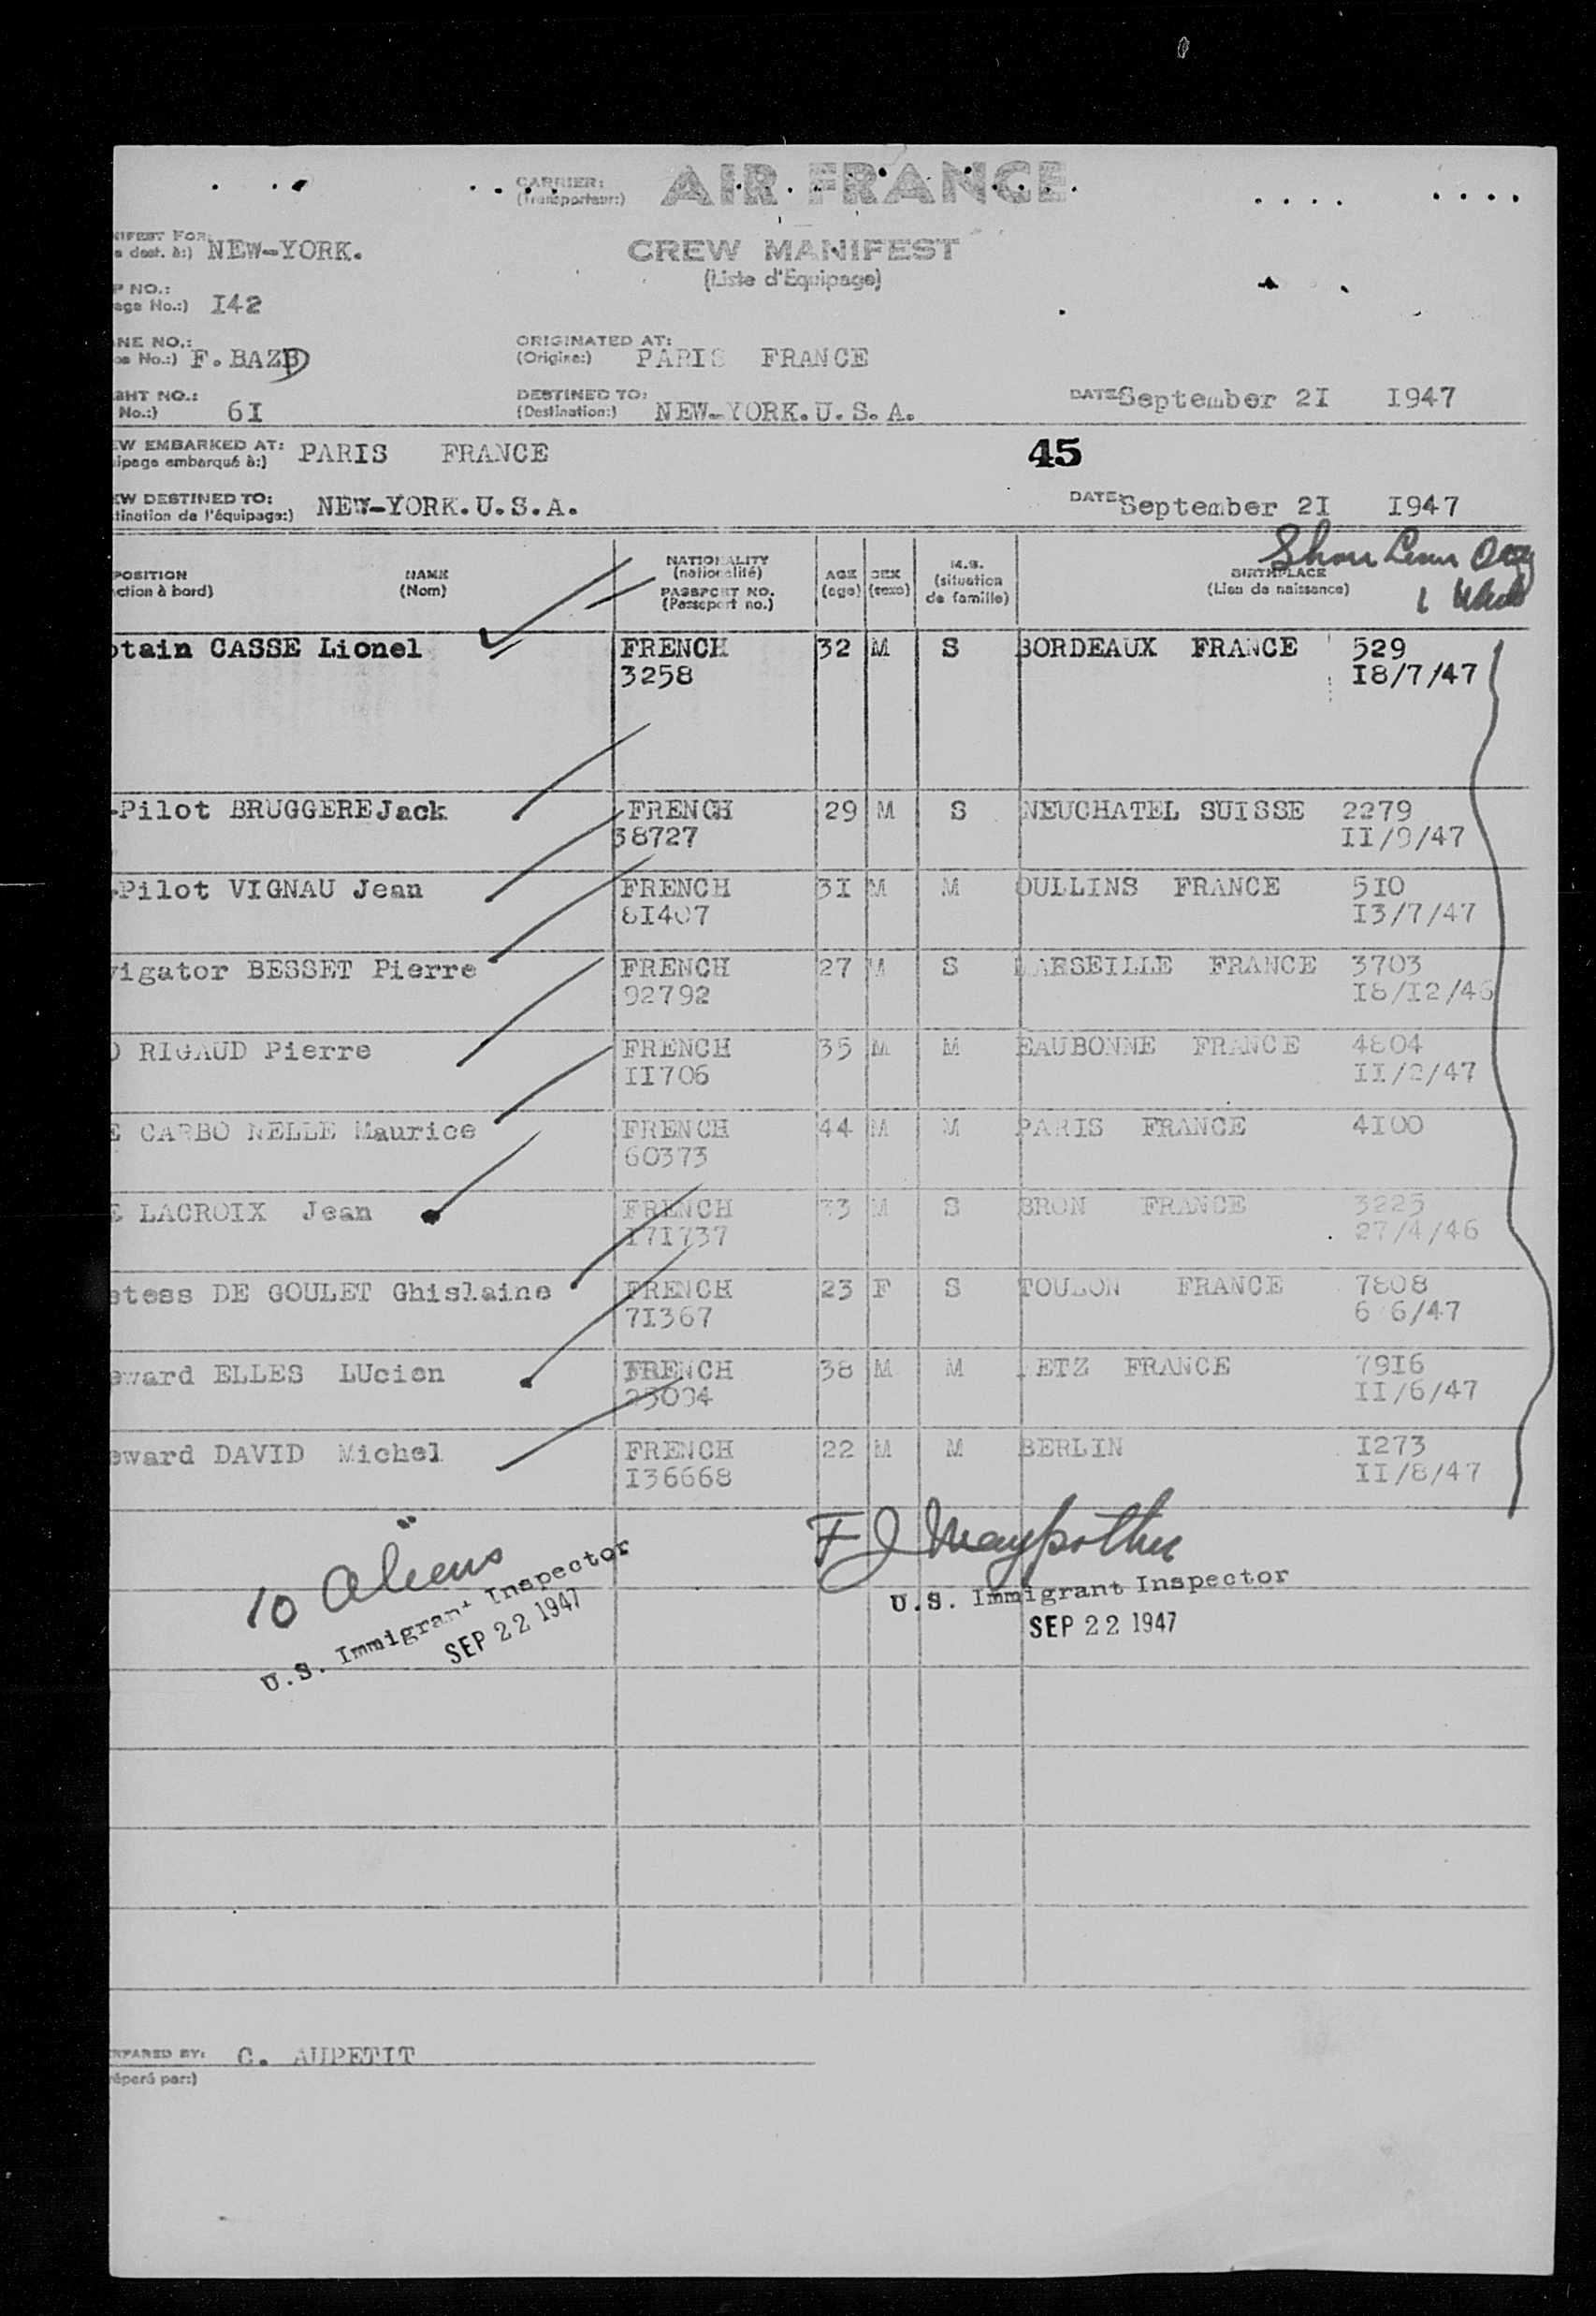 CARRIER: AIR FRANCE
(Transporteur:)
NIFEST FOR: NEW-YORK.
a dest. à:)
CREW MANIFEST
(Liste d'Equipage)
P NO.: I42
age No.:)
NE NO.: F.BAZD
No.:)
ORIGINATED AT: PARIS FRANCE
(Origine:)
GHT NO.: 6I
No.:)
DESTINED TO: NEW-YORK.U.S.A.
(Destination:)
DATE: September 2I 1947
EW EMBARKED AT: PARIS FRANCE
ipage embarqué à:)
45
EW DESTINED TO: NEW-YORK.U.S.A.
tination de l'équipage:)
DATE: September 2I 1947
POSITION
ction à bord)
NAME
(Nom)
NATIONALITY
(nationalité)
PASSPORT NO.
(Passeport no.)
AGE
(age)
SEX
(sexe)
M.S.
(situation
de famille)
BIRTHPLACE
(Lieu de naissance)
Shore Leave Only
ptain CASSE Lionel FRENCH 32 M S BORDEAUX FRANCE 529
3258 I8/7/47
-Pilot BRUGGEREJack FRENCH 29 M S NEUCHATEL SUISSE 2279
38727 II/9/47
-Pilot VIGNAU Jean FRENCH 3I M M OULLINS FRANCE 5I0
8I407 I3/7/47
vigator BESSET Pierre FRENCH 27 M S MARSEILLE FRANCE 3703
92792 I8/I2/46
O RIGAUD Pierre FRENCH 35 M M EAUBONNE FRANCE 4804
II706 II/2/47
E CARBO NELLE Maurice FRENCH 44 M M PARIS FRANCE 4I00
60373
E LACROIX Jean FRENCH 33 M S BRON FRANCE 3225
I7I737 27/4/46
stess DE GOULET Ghislaine FRENCH 23 F S TOULON FRANCE 7808
7I367 6 6/47
eward ELLES LUcien FRENCH 38 M M METZ FRANCE 79I6
23094 II/6/47
eward DAVID Michel FRENCH 22 M M BERLIN I273
I36668 II/8/47
10 Aliens
U.S. Immigrant Inspector
SEP 22 1947
U.S. Immigrant Inspector
SEP 22 1947
EPARED BY: C. AUPETIT
réparé par:)